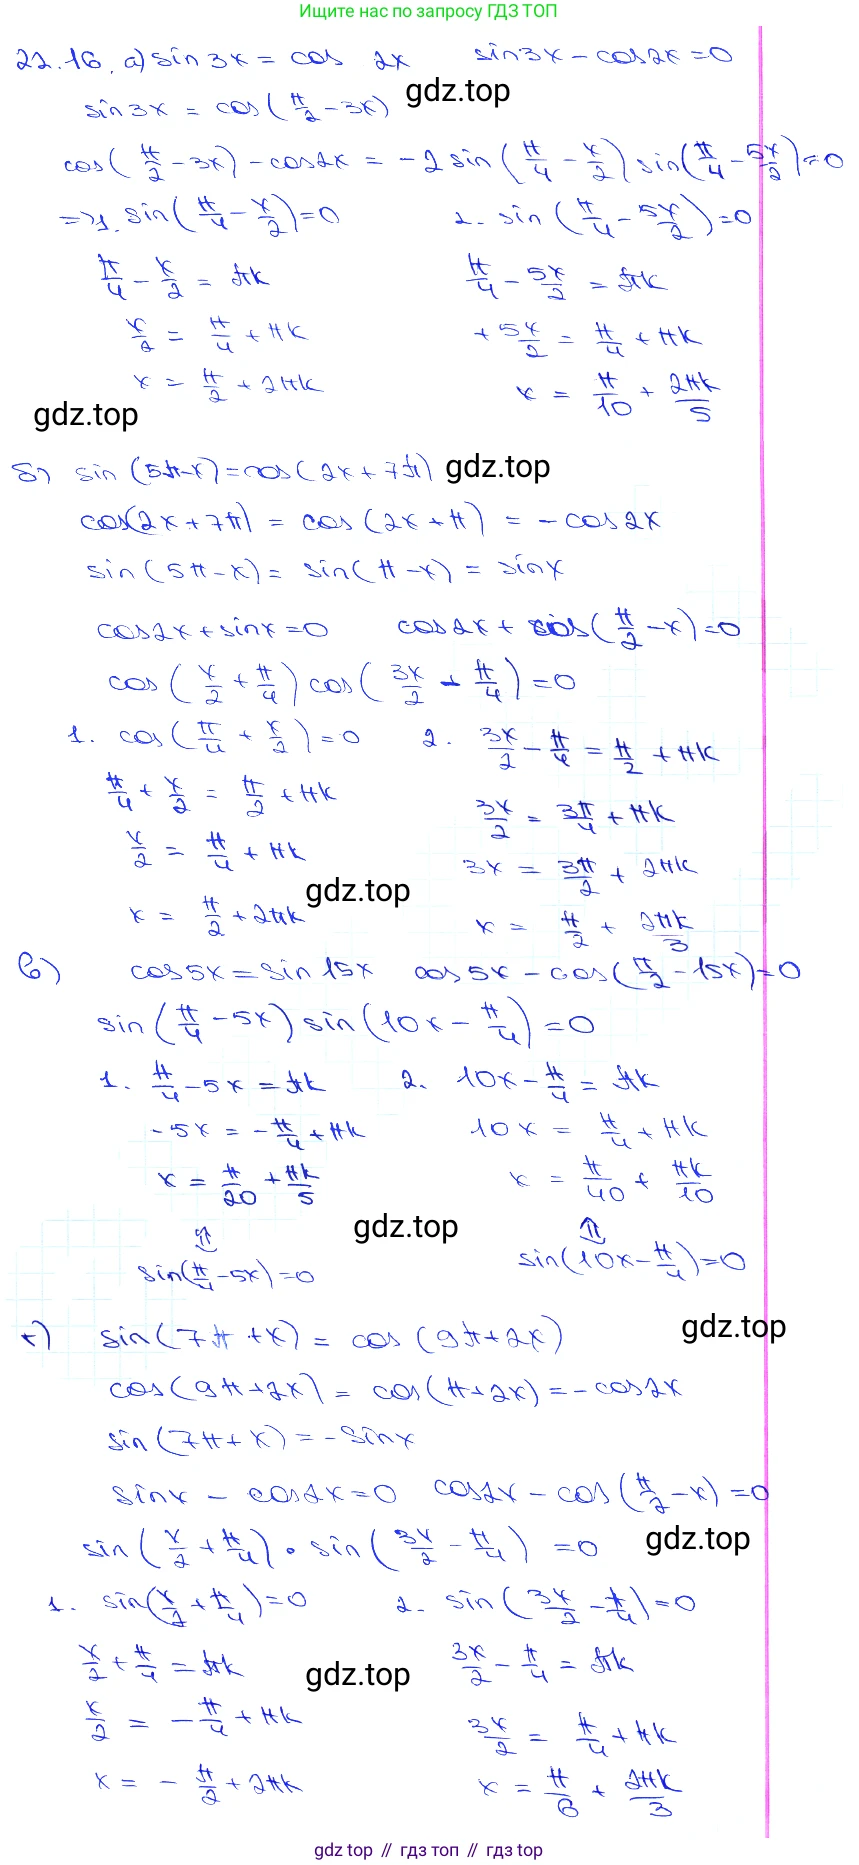 Ищите нас по запросу ГДЗ ТОП
22.16. а) sin 3x = cos 2x   sin3x - cos2x = 0
sin3x = cos(π/2 - 3x)   gdz.top
cos(π/2 - 3x) - cos2x = -2 sin(π/4 - x/2) sin(π/4 - 5x/2) = 0
=> 1. sin(π/4 - x/2) = 0   2. sin(π/4 - 5x/2) = 0
π/4 - x/2 = πk   π/4 - 5x/2 = πk
x/2 = π/4 + πk   +5x/2 = π/4 + πk
x = π/2 + 2πk   x = π/10 + 2πk/5
gdz.top
б) sin(5π-x) = cos(2x + 7π)   gdz.top
cos(2x + 7π) = cos(2x + π) = -cos2x
sin(5π - x) = sin(π - x) = sinx
cos2x + sinx = 0   cos2x + cos(π/2 - x) = 0
cos(x/2 + π/4) cos(3x/2 - π/4) = 0
1. cos(π/4 + x/2) = 0   2. 3x/2 - π/4 = π/2 + πk
π/4 + x/2 = π/2 + πk   3x/2 = 3π/4 + πk
x/2 = π/4 + πk   3x = 3π/2 + 2πk
gdz.top
x = π/2 + 2πk   x = π/2 + 2πk/3
в) cos5x = sin15x   cos5x - cos(π/2 - 15x) = 0
sin(π/4 - 5x) sin(10x - π/4) = 0
1. π/4 - 5x = πk   2. 10x - π/4 = πk
-5x = -π/4 + πk   10x = π/4 + πk
x = π/20 + πk/5   x = π/40 + πk/10
gdz.top
sin(π/4 - 5x) = 0   sin(10x - π/4) = 0
г) sin(7π + x) = cos(9π + 2x)   gdz.top
cos(9π + 2x) = cos(π + 2x) = -cos2x
sin(7π + x) = -sinx
sinx - cos2x = 0   cos2x - cos(π/2 - x) = 0
sin(x/2 + π/4) • sin(3x/2 - π/4) = 0   gdz.top
1. sin(x/2 + π/4) = 0   2. sin(3x/2 - π/4) = 0
x/2 + π/4 = πk   gdz.top   3x/2 - π/4 = πk
x/2 = -π/4 + πk   3x/2 = π/4 + πk
x = -π/2 + 2πk   x = π/6 + 2πk/3
gdz top // гдз топ // gdz top